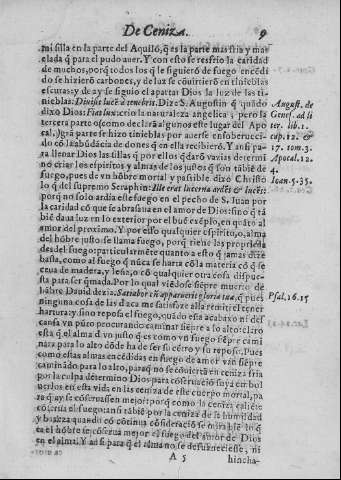 De Ceniza. 9
mi silla en la parte del Aquilõ, q̃ es la parte mas fria y mas
elada q̃ para el pudo auer. Y con esto se resfrio la caridad
de muchos, porq̃ todos los q̃ le siguierõ de fuego encẽdi
do se hizierõ carbones, y de luz se cõuirtierõ en tinieblas
escuras: y de ay se siguio el apartar Dios la luz de las ti-
nieblas: Diuisit lucẽ à tenebris. Dize S. Augustin q̃ quãdo
dixo Dios: Fiat lux: crio la naturaleza angelica; pero la
tercera parte escomo declarã algunos este lugar del Apo
cal.) grã parte se hizo tinieblas por auerse ensoberueci-
do cõ la abũdácia de dones q̃ en ella recibierõ. Y ansi pa-
ra llenar Dios las sillas q̃ por ellos q̃darõ vazias determi
no criar los espiritus y almas de los justos q̃ son tãbiẽ de
fuego, pues de vn hõbre mortal y passible dixo Christo
lo q̃ del supremo Seraphin: Ille erat lucerna ardẽs & lucẽs:
porq̃ no solo ardia este fuego en el pecho de S. Juan por
la caridad cõ que se abrasaua en el amor de Dios: sino q̃ tã
biẽ daua luz en lo exterior por el buẽ exẽplo, en quãto al
amor del proximo. Y por esso qualquier espirito, o alma
del hõbre justo se llama fuego, porq̃ tiene las propieda
des del fuego: particularmẽte quanto a esto q̃ jamas dize
basta, como al fuego q̃ nũca se harta cõ la materia cõ q̃ se
ceua de madera, y leña, o cõ qualquier otra cosa dispue-
sta para ser q̃mada. Por lo qual viẽdose siẽpre muerto de
hãbre Dauid dezia: Satiabor cũ apparuerit gloria tua. q̃ pues
ninguna cosa de las d'aca me satisfaze alla remiti el tener
hartura: y sino reposa el fuego, quãdo esta acabaxo ni des
cansa vn pũto procurando caminar siẽpre a lo alto: claro
esta q̃ el alma d' vn justo q̃ es como vn fuego siẽpre cami
nara para lo alto dõde ha de ser su cẽtro y su reposo. Pues
como estas almas encẽdidas en fuego de amor van siẽpre
caminãdo para lo alto, paraq̃ no se cõuiertã en ceniza fria
por la culpa determino Dios para cõseruaciõ suya embol
uerlos en esta vida en las ceniza de este cuerpo mortal, pa
ra q̃ ay se cõseruassen mejor: porq̃ como la ceniza caliẽte
cõserua el fuego: ansi tãbiẽ por la ceniza de la humildad
y baxeza quando cõ cõtinua cõsideraciõ se mira biẽ lo q̃
es el hõbre se cõserua mejor el fuego del amor de Dios
en el alma. Y ansi para q̃ el alma no se desuaneciesse, ni
A 5 hincha-
August. de
Genes. ad li
ter. lib. 1.
cap. 12. &
17. tom. 3.
Apocal. 12.
4.
Ioan. 5. 35.
Psal. 16. 15